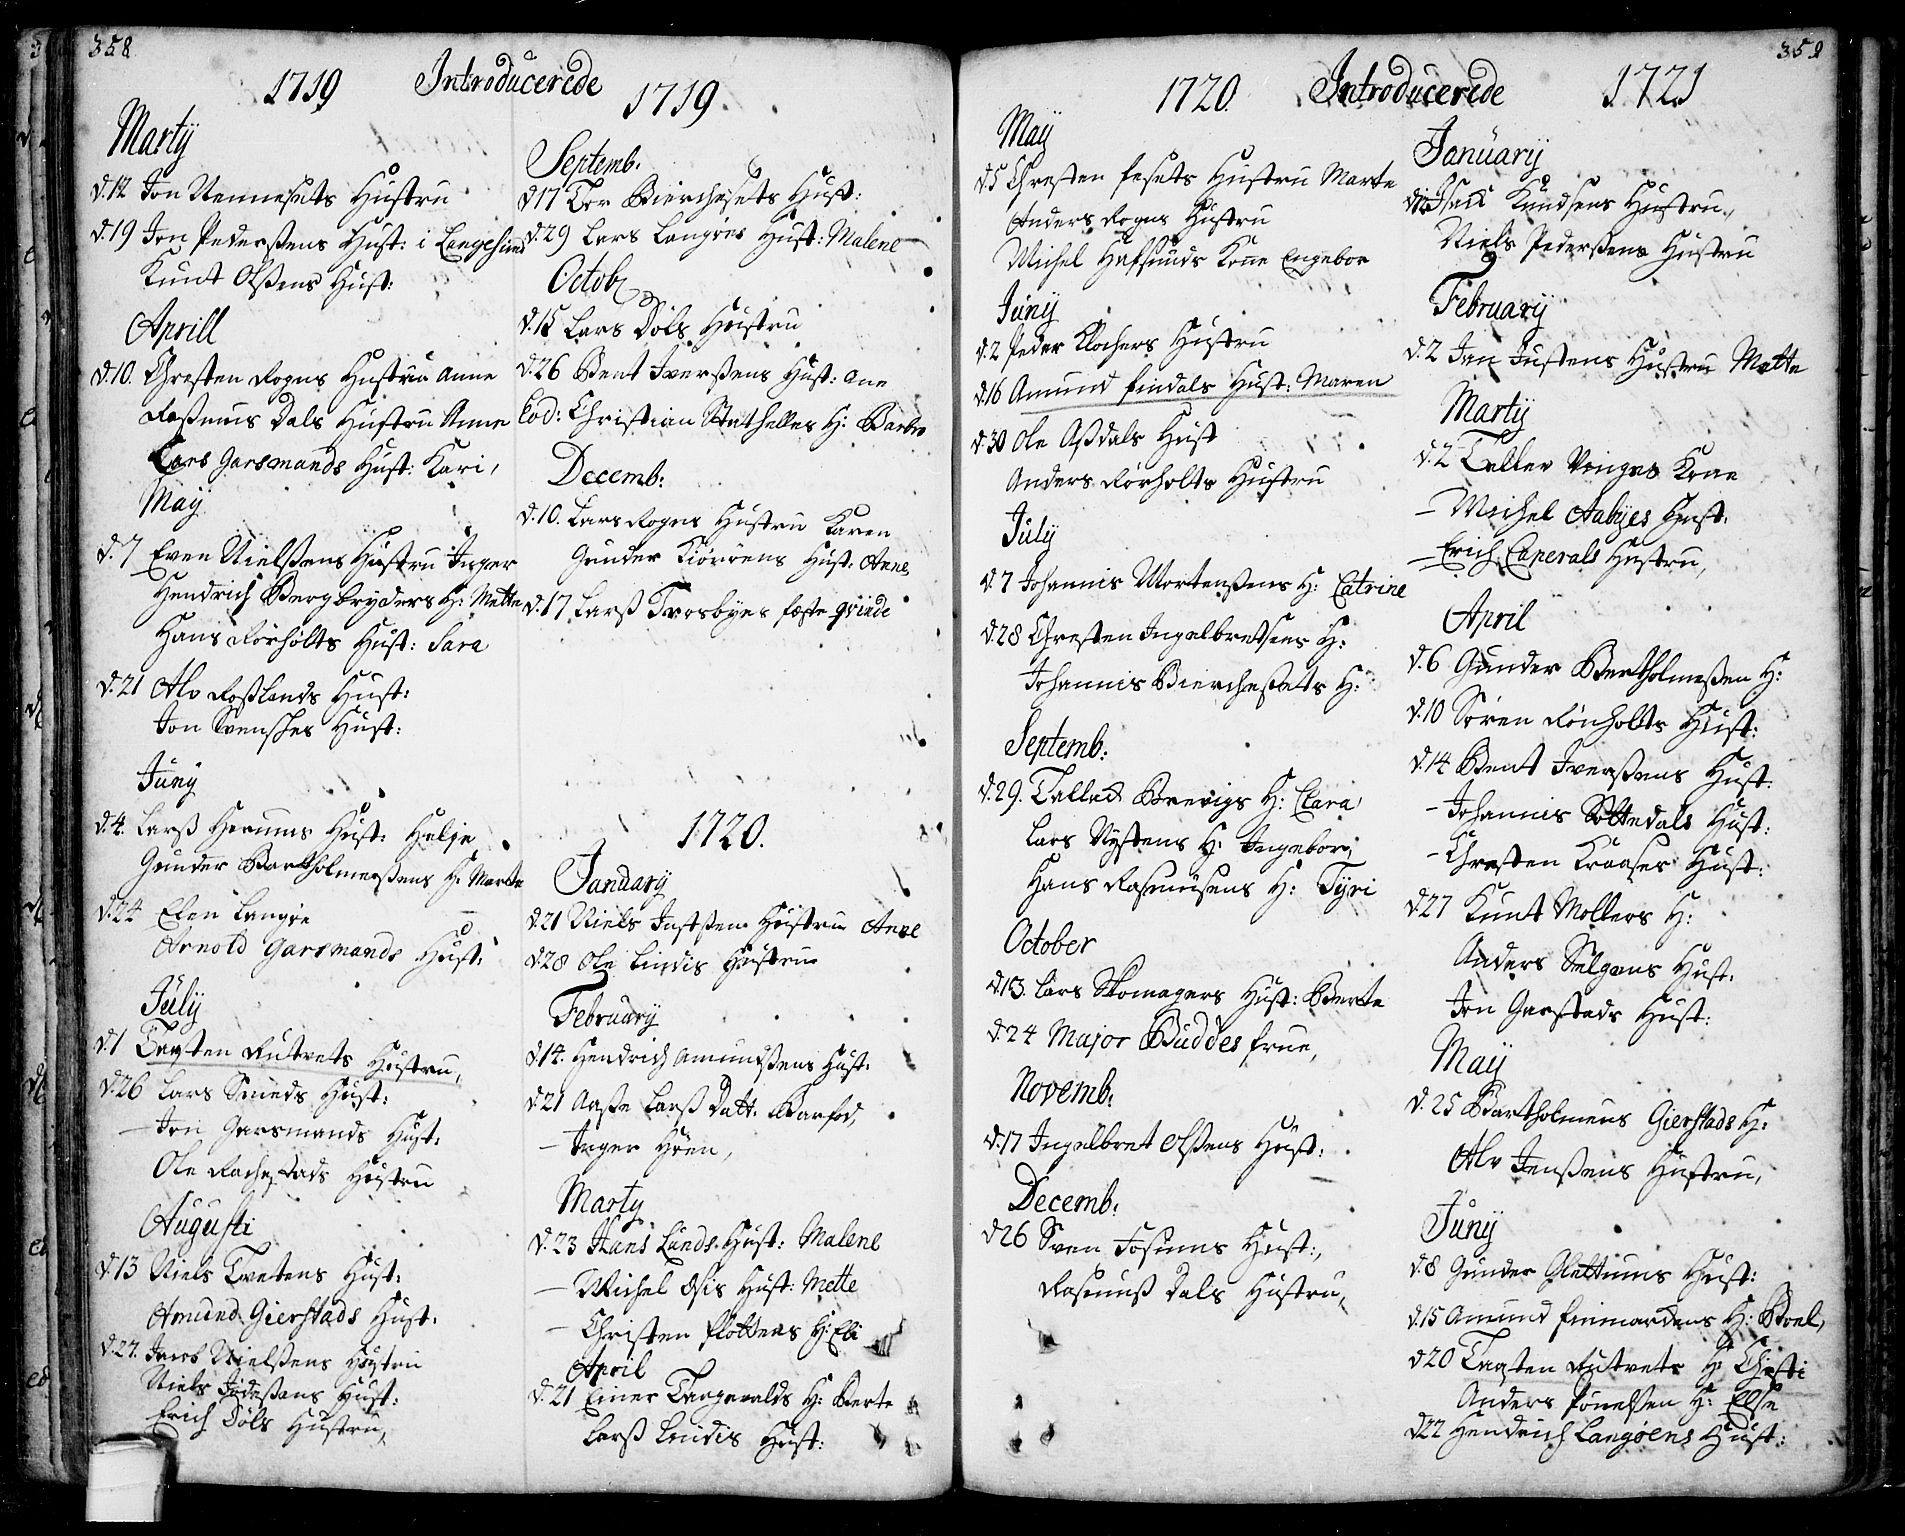 358
1719 Introducerede
Martij
d. 12 Jon Hustru
d. 19 Jon Pederßens Hust: i Langesund
Knut Olßens Hust:
Aprill
d. 10. Chresten Rogns Hustru Anne
Raßmus Dals Hustru Anne
Lars Garsmands Hust: Kari,
Maij
d. 7 Even Nielßens Hustru Inger
Hendrich Bergbryders H: Mette
Hans Rörholts Hust: Sara
d. 21 Alv Roßlands Hust:
Jon Hust:
Junij
d. 4. Larß Herums Hust: Helje
Gunder Bartholmeßens H: Marte
d. 24 Elen Langöe
Arnold Garsmands Hust:
Julij
d. 1 Taasten Rutvets Hustru,
d. 26 Lars Smeds Hust:
— Jon Garsmands Hust:
Ole Hustru
Augusti
d. 13 Niels Tvetens Hust:
Amund Gierstads Hust:
d. 27. Jacob Nielßens Hustru
Niels Hust:
Erich Döls Hustru,
1719.
Septemb:
d. 17 Tor Bierchesets Hust:
d. 29 Lars Langöes Hust: Malene
Octob:
d. 15 Lars Döls Hustru
d. 26 Bent Iverßens Hust: Ane
Eod: Christian Stathelles H: Barbro
Decemb:
d. 10. Lars Rogns Hustru Karen
Gunder Hust: Anne
d. 17 Larß Trosbyes fæste qvinde
1720.
January
d. 21 Niels Justßens Hustru Anne
d. 28 Ole Lindis Hustru
February
d. 14. Hendrich Amundßens Hust:
d. 21 Aaße Larß Datt: Barfod,
— Inger Höen,
Marty
d. 23 Hans Lunds Hust: Malene
— Michel Hust: Mette
— Christen H: Eli
April
d. 21 Einer H: Berte
Larß Lindis Hust:
359
1720. Introducerede 1721
Maij
d. 5 Chresten Hustru Marte
Anders Rogns Hustru
Michel Hafsunds Kone Engebor
Junij
d. 2 Peder Klochers Hustru
d. 16 Amund Findals Hust: Maren
d. 30 Ole Aßdals Hust
Anders Rörholts Hustru
Julij
d. 7 Johannis Mortenßens H: Catrine
d. 28 Chresten Ingelbretsens H:
Johannis Biercheßets H:
Septemb:
d. 29. Tallack Brevigs H: Clara
Lars Nystens H: Ingeborg
Hans Rasmusens H: Tyri
October
d. 13. Lars Skomagers Hust: Berte
d. 24 Major Buddes frue,
Novemb:
d. 17 Ingelbret Olßens Hust:
Decemb:
d. 26 Sven Fosums Hust:,
Rasmuß Dals Hustru,
Januarij
Isach Knudsens Hustru,
Niels Pederßens Hustru
Februarij
d. 2 Jan Justens Hustru Mette
Martij
d. 2 Kone
— Michel Aabyes Hust:
— Erich Caperals Hustru,
April
d. 6 Gunder Bertholmeßen H:
d. 10 Sören Rönholts Hust:
d. 14 Bent Iverßens Hust:
— Johannis Hust:
— Chresten Kraases Hust:
d. 27 Knut Mollers H:
Anders Hust:
Jon Garstads Hust:
May
d. 25 Bartholmeus Gierstads H:
Alv Jenßens Hustru,
Junij
d. 8 Gunder Hust:
d. 15 Amund Finmarckens H: Boel,
d. 20 Taasten Rutvets H: Chisti
Anders H: Else
d. 22 Hendrich Langöens Hust: